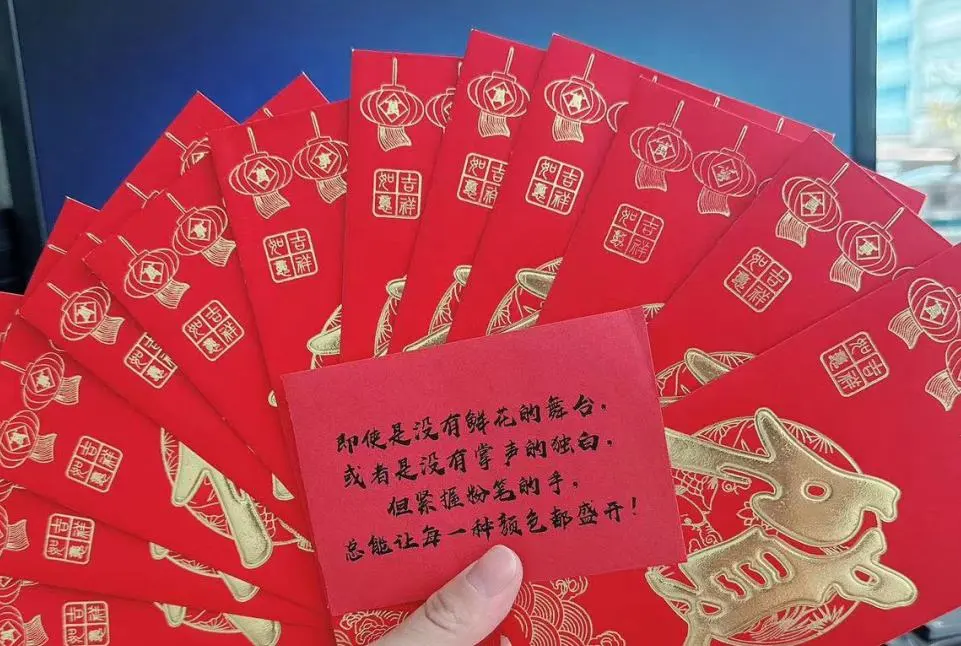 吉祥如意
吉祥如意
吉祥如意
吉祥如意
吉祥如意
吉祥如意
吉祥如意
吉祥如意
吉祥如意
吉祥如意
吉祥如意
吉祥如意
即使是没有鲜花的舞台，
或者是没有掌声的独白，
但紧握粉笔的手，
总能让每一种颜色都盛开！